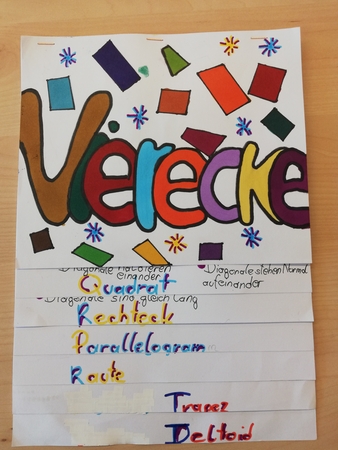 Vierecke
Diagonale halbieren
einander
Diagonale stehen Normal
aufeinander
Quadrat
Diagonale sind gleich lang
Rechteck
Parallelogram
Raute
Trapez
Deltoid